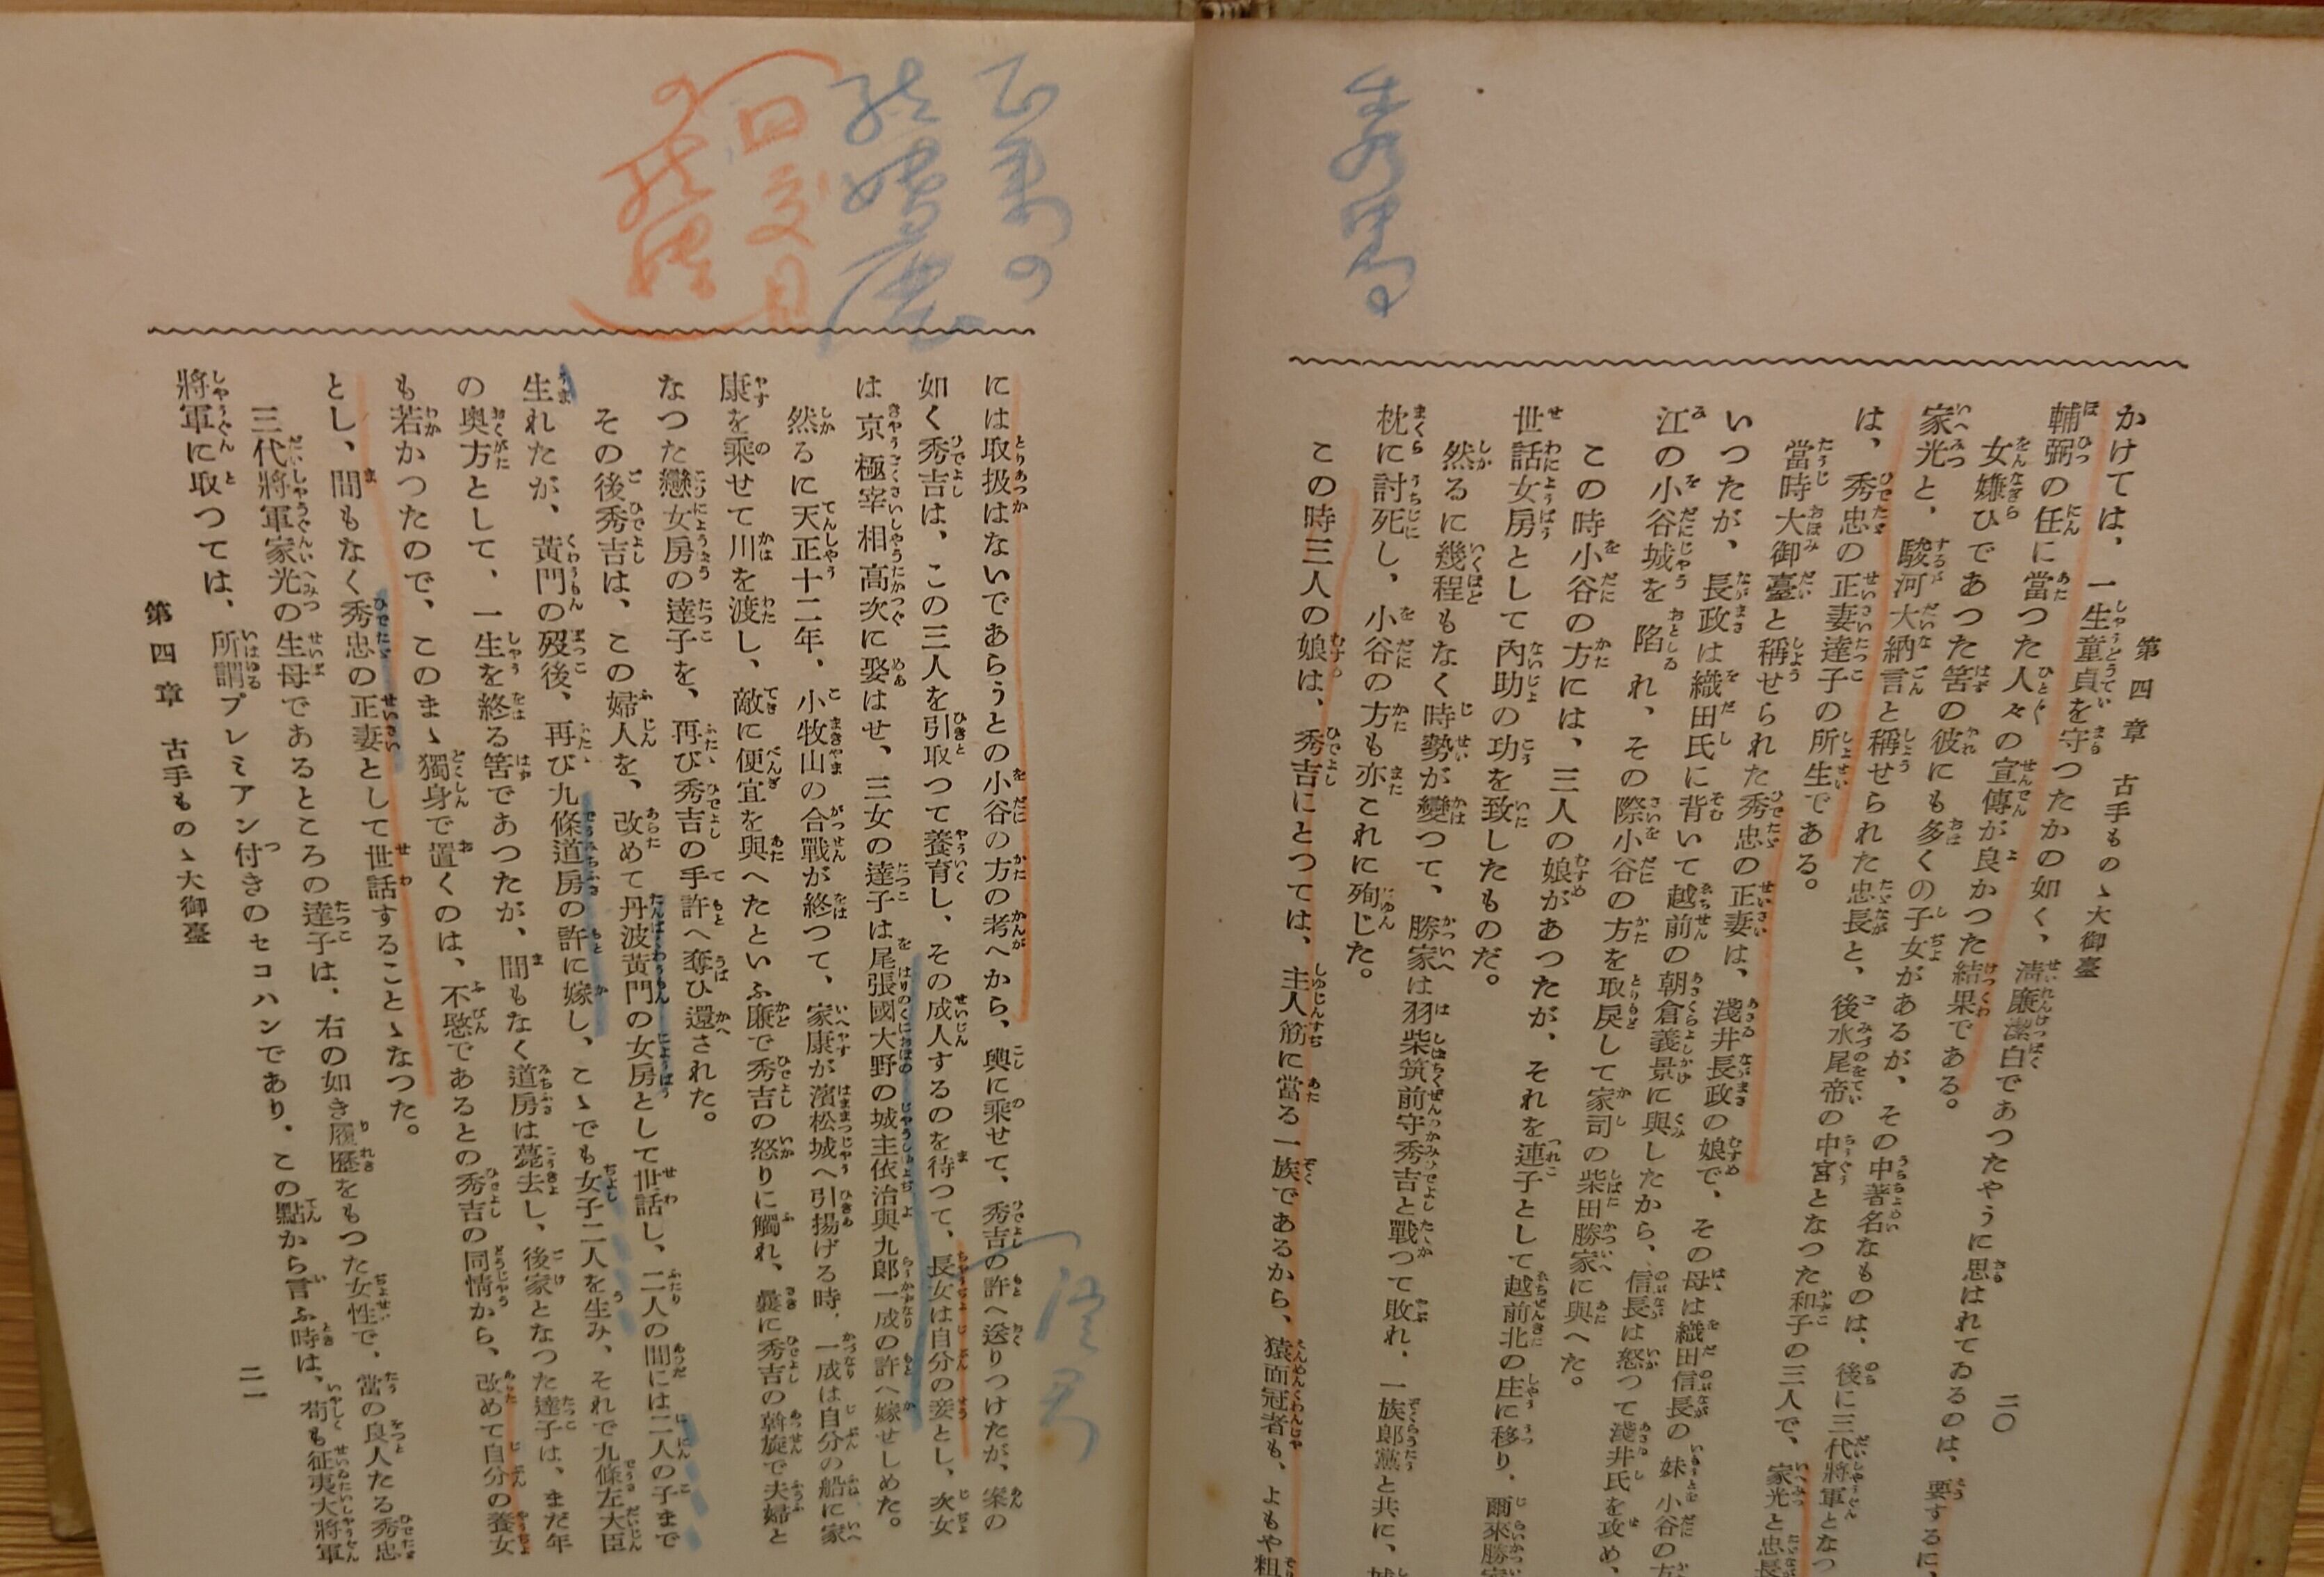 第四章 古手ものゝ大御臺
二〇
かけては、一生童貞を守つたかの如く、淸廉潔白であつたやうに思はれてゐるのは、要するに、
輔弼の任に當つた人々の宣傳が良かつた結果である。
女嫌ひであつた筈の彼にも多くの子女があるが、その中著名なものは、後に三代將軍となつ
家光と、駿河大納言と稱せられた忠長と、後水尾帝の中宮となつた和子の三人で、家光と忠長
は、秀忠の正妻達子の所生である。
當時大御臺と稱せられた秀忠の正妻は、淺井長政の娘で、その母は織田信長の妹小谷の方
いつたが、長政は織田氏に背いて越前の朝倉義景に與したから、信長は怒つて淺井氏を攻め、
江の小谷城を陷れ、その際小谷の方を取戾して家司の柴田勝家に與へた。
この時小谷の方には、三人の娘があつたが、それを連子として越前北の庄に移り、爾來勝家
世話女房として內助の功を致したものだ。
然るに幾程もなく時勢が變つて、勝家は羽柴筑前守秀吉と戰つて敗れ、一族郞黨と共に、城
枕に討死し、小谷の方も亦これに殉じた。
この時三人の娘は、秀吉にとつては、主人筋に當る一族であるから、猿面冠者も、よもや粗
には取扱はないであらうとの小谷の方の考へから、輿に乘せて、秀吉の許へ送りつけたが、案の
如く秀吉は、この三人を引取つて養育し、その成人するのを待つて、長女は自分の妾とし、次女
は京極宰相高次に娶はせ、三女の達子は尾張國大野の城主依治與九郞一成の許へ嫁せしめた。
然るに天正十二年、小牧山の合戰が終つて、家康が濱松城へ引揚げる時、一成は自分の船に家
康を乘せて川を渡し、敵に便宜を與へたといふ廉で秀吉の怒りに觸れ、曩に秀吉の斡旋で夫婦と
なつた戀女房の達子を、再び秀吉の手許へ奪ひ還された。
その後秀吉は、この婦人を、改めて丹波黃門の女房として世話し、二人の間には二人の子まで
生れたが、黃門の歿後、再び九條道房の許に嫁し、こゝでも女子二人を生み、それで九條左大臣
の奧方として、一生を終る筈であつたが、間もなく道房は薨去し、後家となつた達子は、まだ年
も若かつたので、このまゝ獨身で置くのは、不愍であるとの秀吉の同情から、改めて自分の養女
とし、間もなく秀忠の正妻として世話することゝなつた。
三代將軍家光の生母であるところの達子は、右の如き履歷をもつた女性で、當の良人たる秀忠
將軍に取つては、所謂プレミアン付きのセコハンであり、この點から言ふ時は、苟も征夷大將軍
第四章 古手ものゝ大御臺
二一